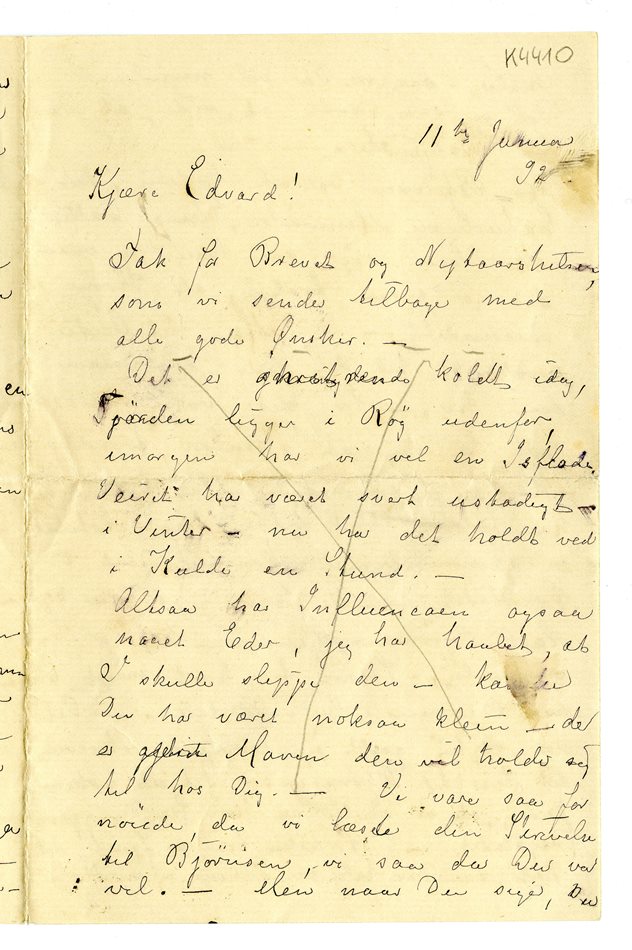 K4410
11te Januar
92
Kjære Edvard!
Tak for Brevet og Nytaarshilsen,
som vi sender tilbage med
alle gode Ønsker. —
Det er koldt idag,
Fjorden ligger i Røg udenfor,
imorgen har vi vel en Isflade.
Veiret har været svært ustadigt
i Vinter — nu har det holdt ved
i Kulde en Stund. —
Altsaa har Influencaen ogsaa
naaet Eder, jeg har haabet, at
I skulle slippe den —
Du har været noksaa klein — det
er Maven den vil holde sig
til hos Dig. — Vi vare saa for
nøiede, da vi læste din Skrivelse
til Bjørnsen, vi saa da Du var
vel. — Men naar Du siger, Du